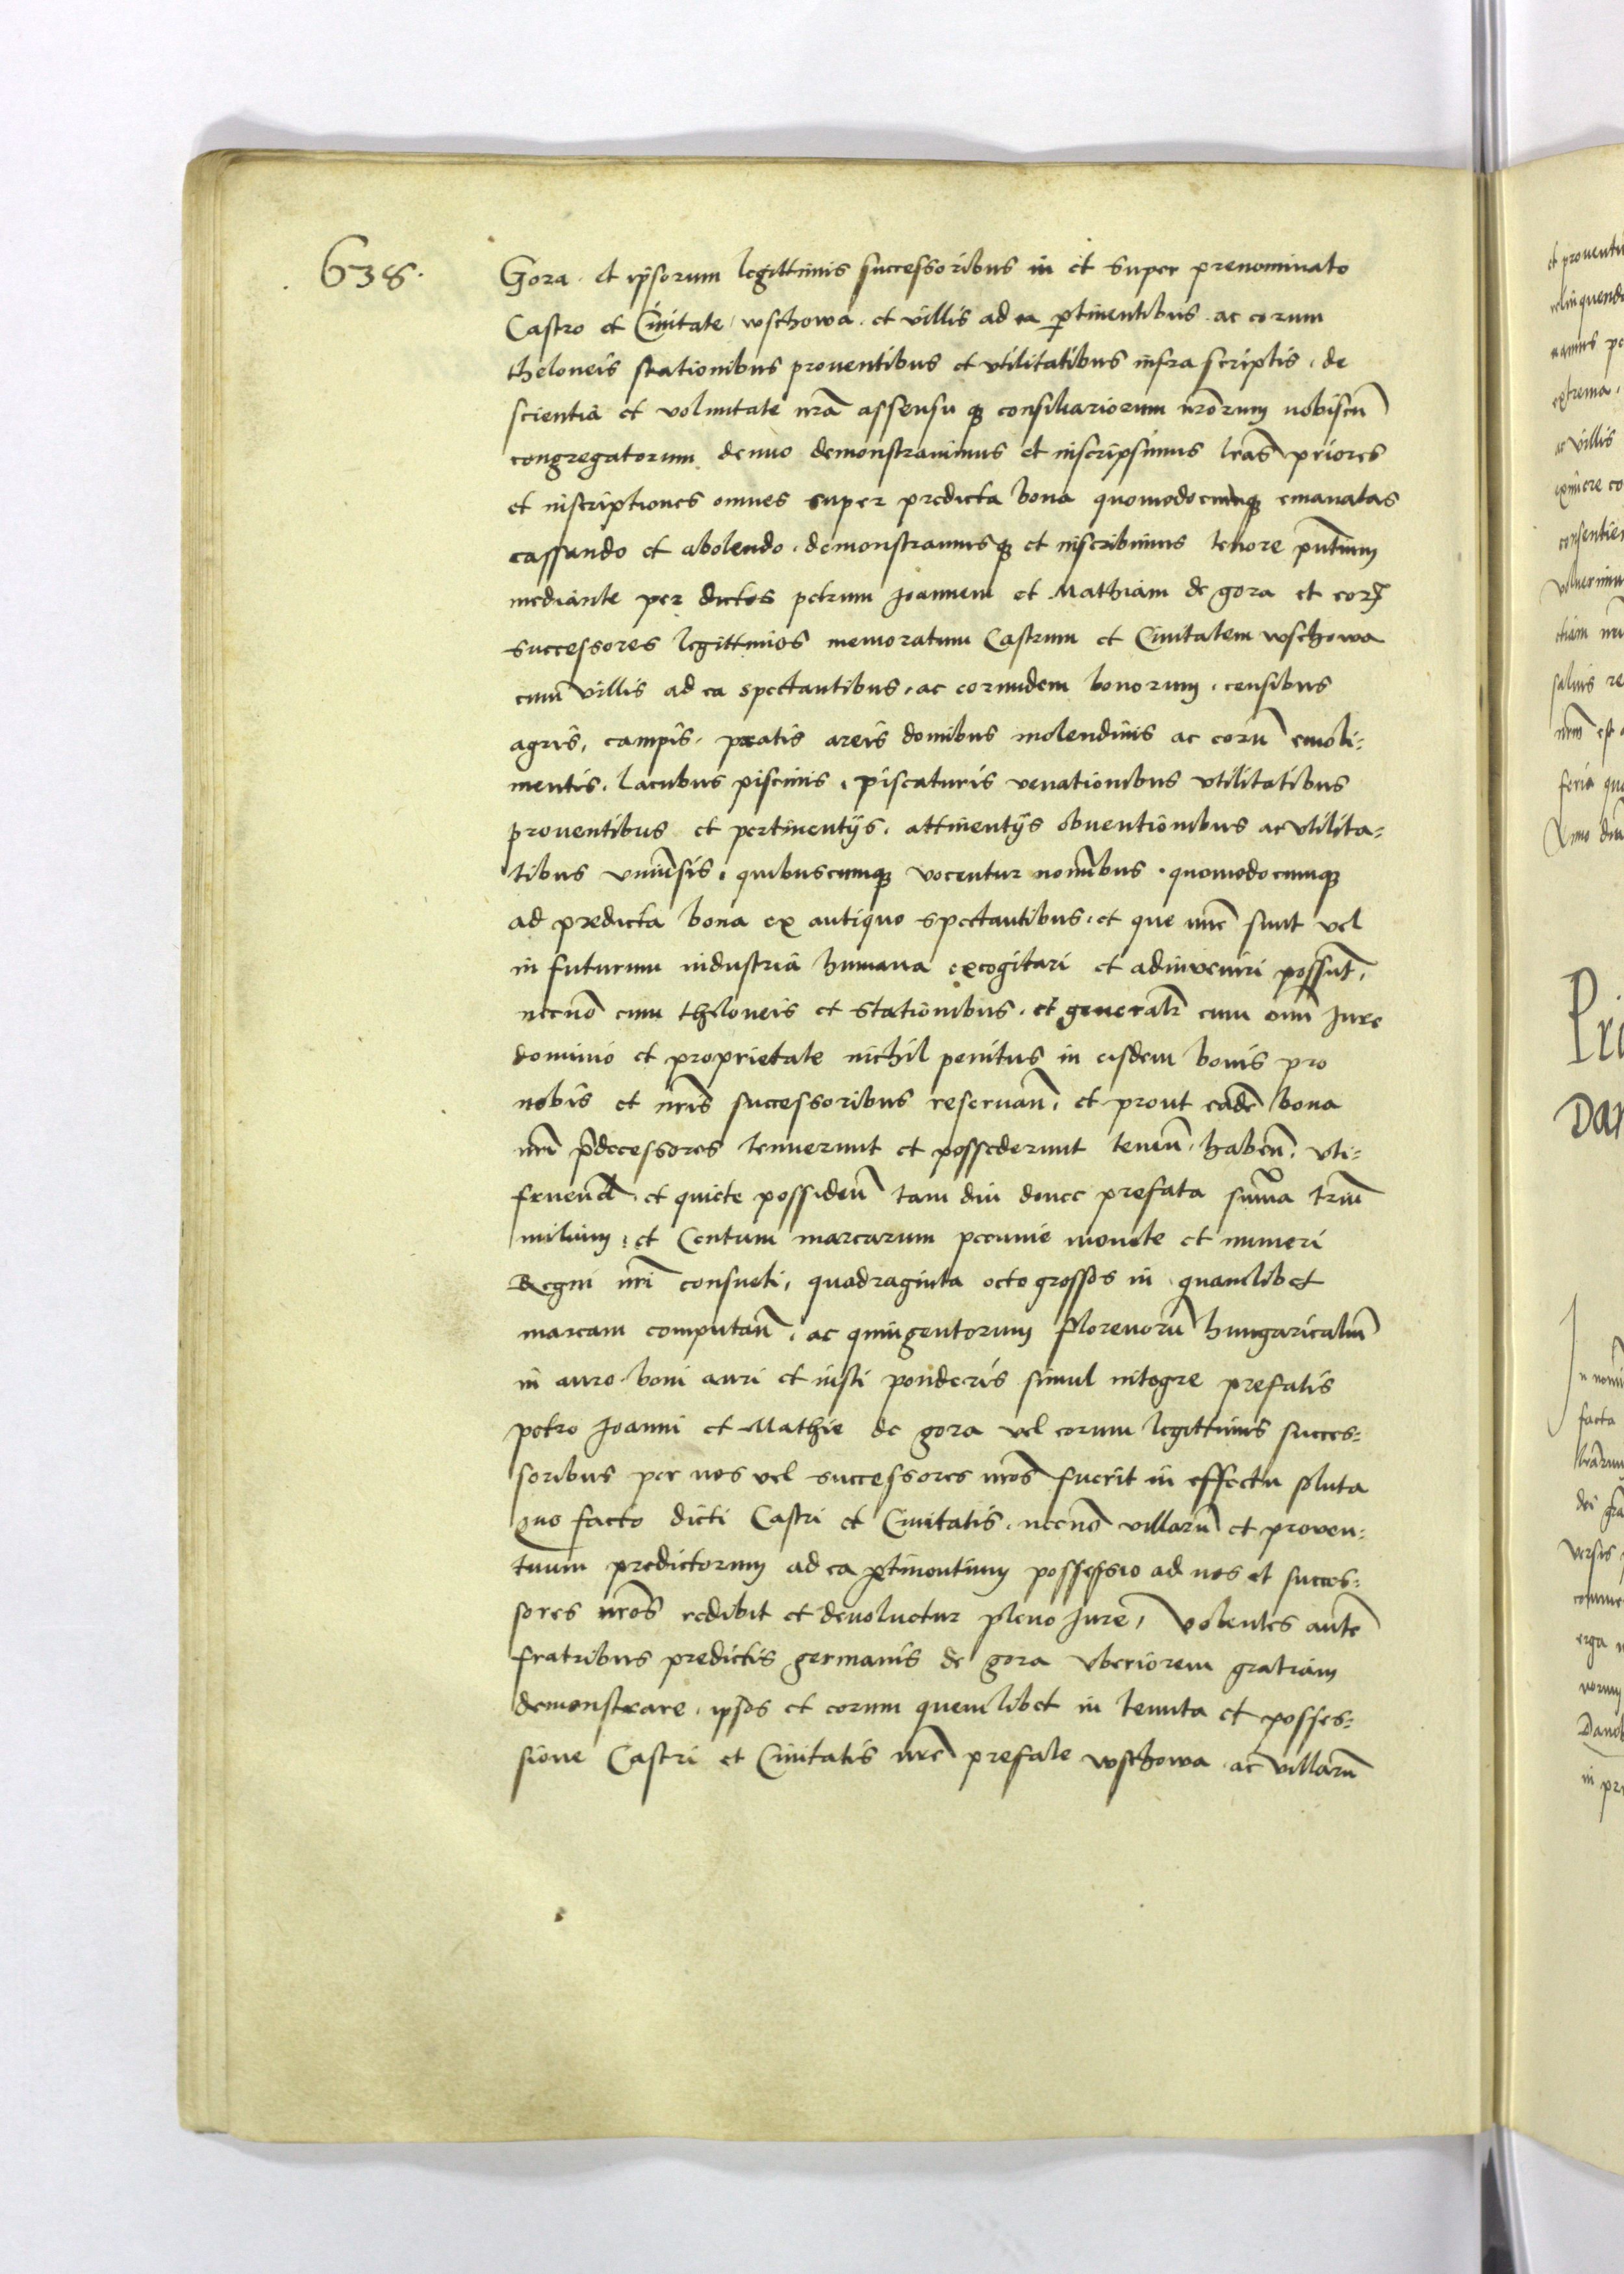 638.
Gora. et ipsorum legittimis successoribus in et super prenominato
Castro et Civitate wschowa. et villis ad ea ꝑtinentibus. ac eorum
theloneis stationibus proventibus et vtilitatibus infra scriptis. de
scientia et voluntate nr̃a assensu qꝫ consiliariorum nr̃orum nobiscũ
congregatorum denuo demonstravimus et inscripsimus lr̃as priores
et inscriptiones omnes super predicta bona quomodocumqꝫ emanatas
cassando et abolendo. demonstramusqꝫ et inscribimus tenore pñtium
mediante per dictos petrum Joannem et Mathiam de gora et eoꝝ
successores legittimos memoratum Castrum et Civitatem wschowa
cum villis ad ea spectantibus. ac eorundem bonorum. censibus
agris, campis. pratis areis domibus molendinis ac eorũ emoli=
mentis. lacubus piscinis. piscaturis venationibus vtilitatibus
proventibus et pertinentijs. attinentijs obventionibus ac vtilita=
tibus vniũsis. quibuscumqꝫ vocentur nomĩbus. quomodocumqꝫ
ad predicta bona ex antiquo spectantibus. et que nũc sunt vel
in futurum industria humana excogitari et adinveniri possũt.
necnõ cum theloneis et stationibus. et generalr̃ cum omĩ Jure
dominio et proprietate nichil penitus in eisdem bonis pro
nobis et nr̃is successoribus reservañ. et prout eadẽ bona
nr̃i p̃decessores tenuerunt et possederunt teneñ. habeñ. vti=
fruend̃. et quiete possideñ tam diu donec prefata sum̃a triũ
milium. et Centum marcarum pecunie monete et numeri
Regni nr̃i consueti, quadraginta octo grossos in quamlibet
marcam computañ. ac quingentorum florenorũ hungaricaliũ
in auro boni auri et iusti ponderis simul integre prefatis
petro Joanni et Mathie de gora vel eorum legittimis succes=
soribus per nos vel successores nr̃os fuerit in effectu soluta
quo facto dicti Castri et Civitatis. necnõ villarũ et proven=
tuum predictorum ad ea ꝑtinentium possessio ad nos et succes=
sores nr̃os redibit et devoluetur pleno Jure, Volentes autẽ
fratribus predictis germanis de gora vberiorem gratiam
demonstrare. ipsos et eorum quemlibet in tenuta et posses=
sione Castri et Civitatis nr̃e prefate wschowa ac villarũ